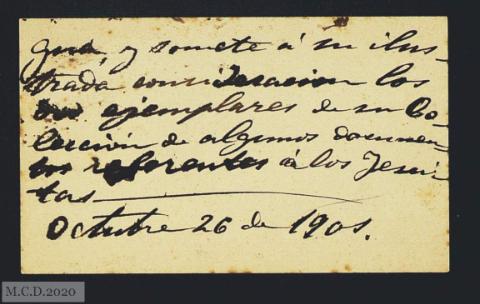 gua y somete á su ilus
trada consideracion los
ejemplares de su Co-
leccion de algunos documen-
tos referentes á los Jesui
tas
Octubre 26 de 1901.
M.C.D.2020